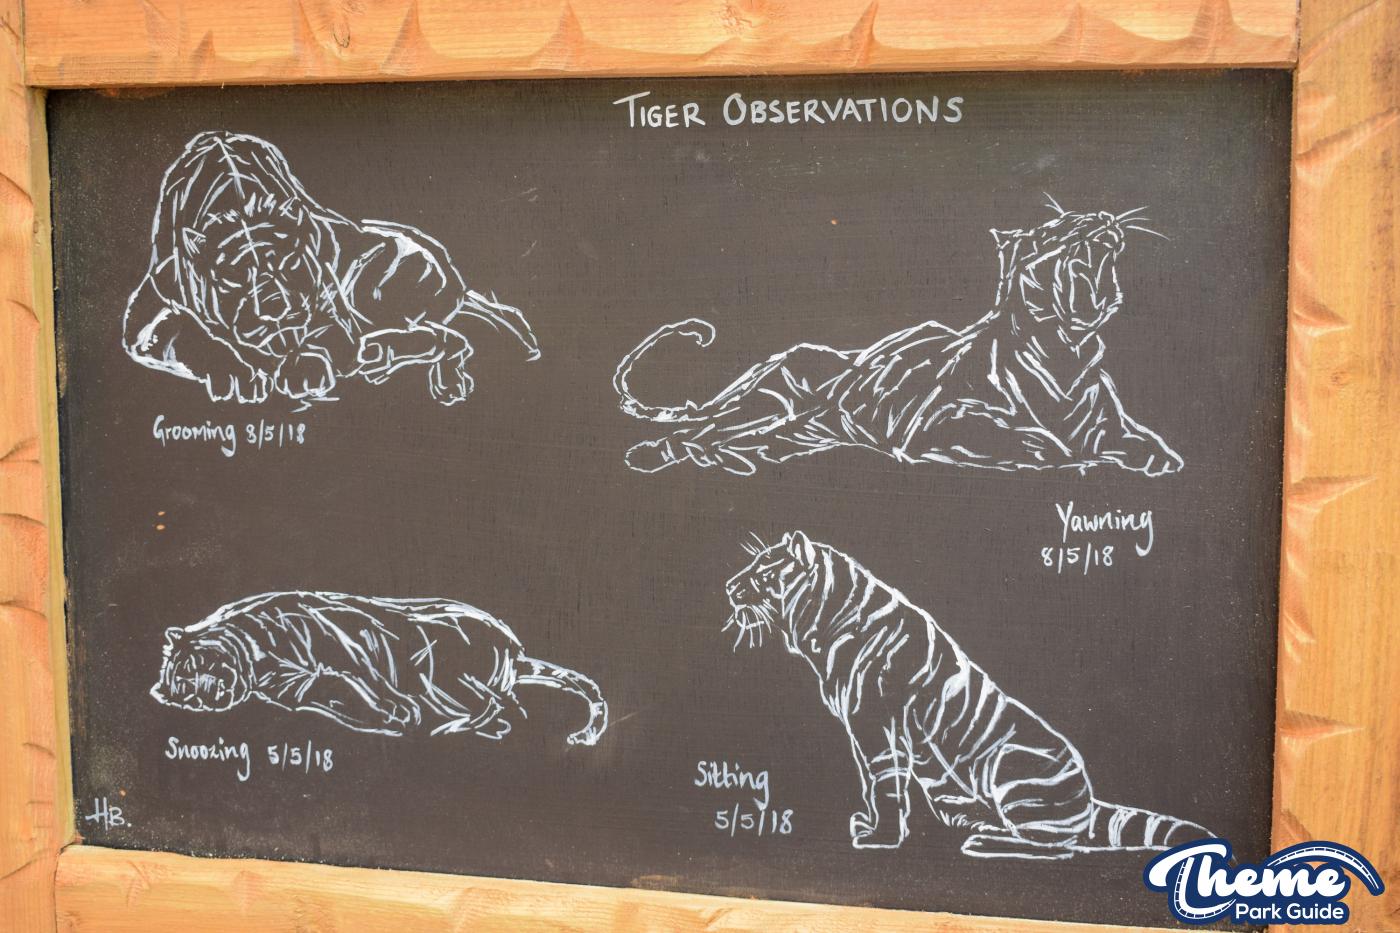 TIGER OBSERVATIONS
Grooming 8/5/18
Yawning
8/5/18
Snoozing 5/5/18
Sitting
5/5/18
HB.
Theme
Park Guide